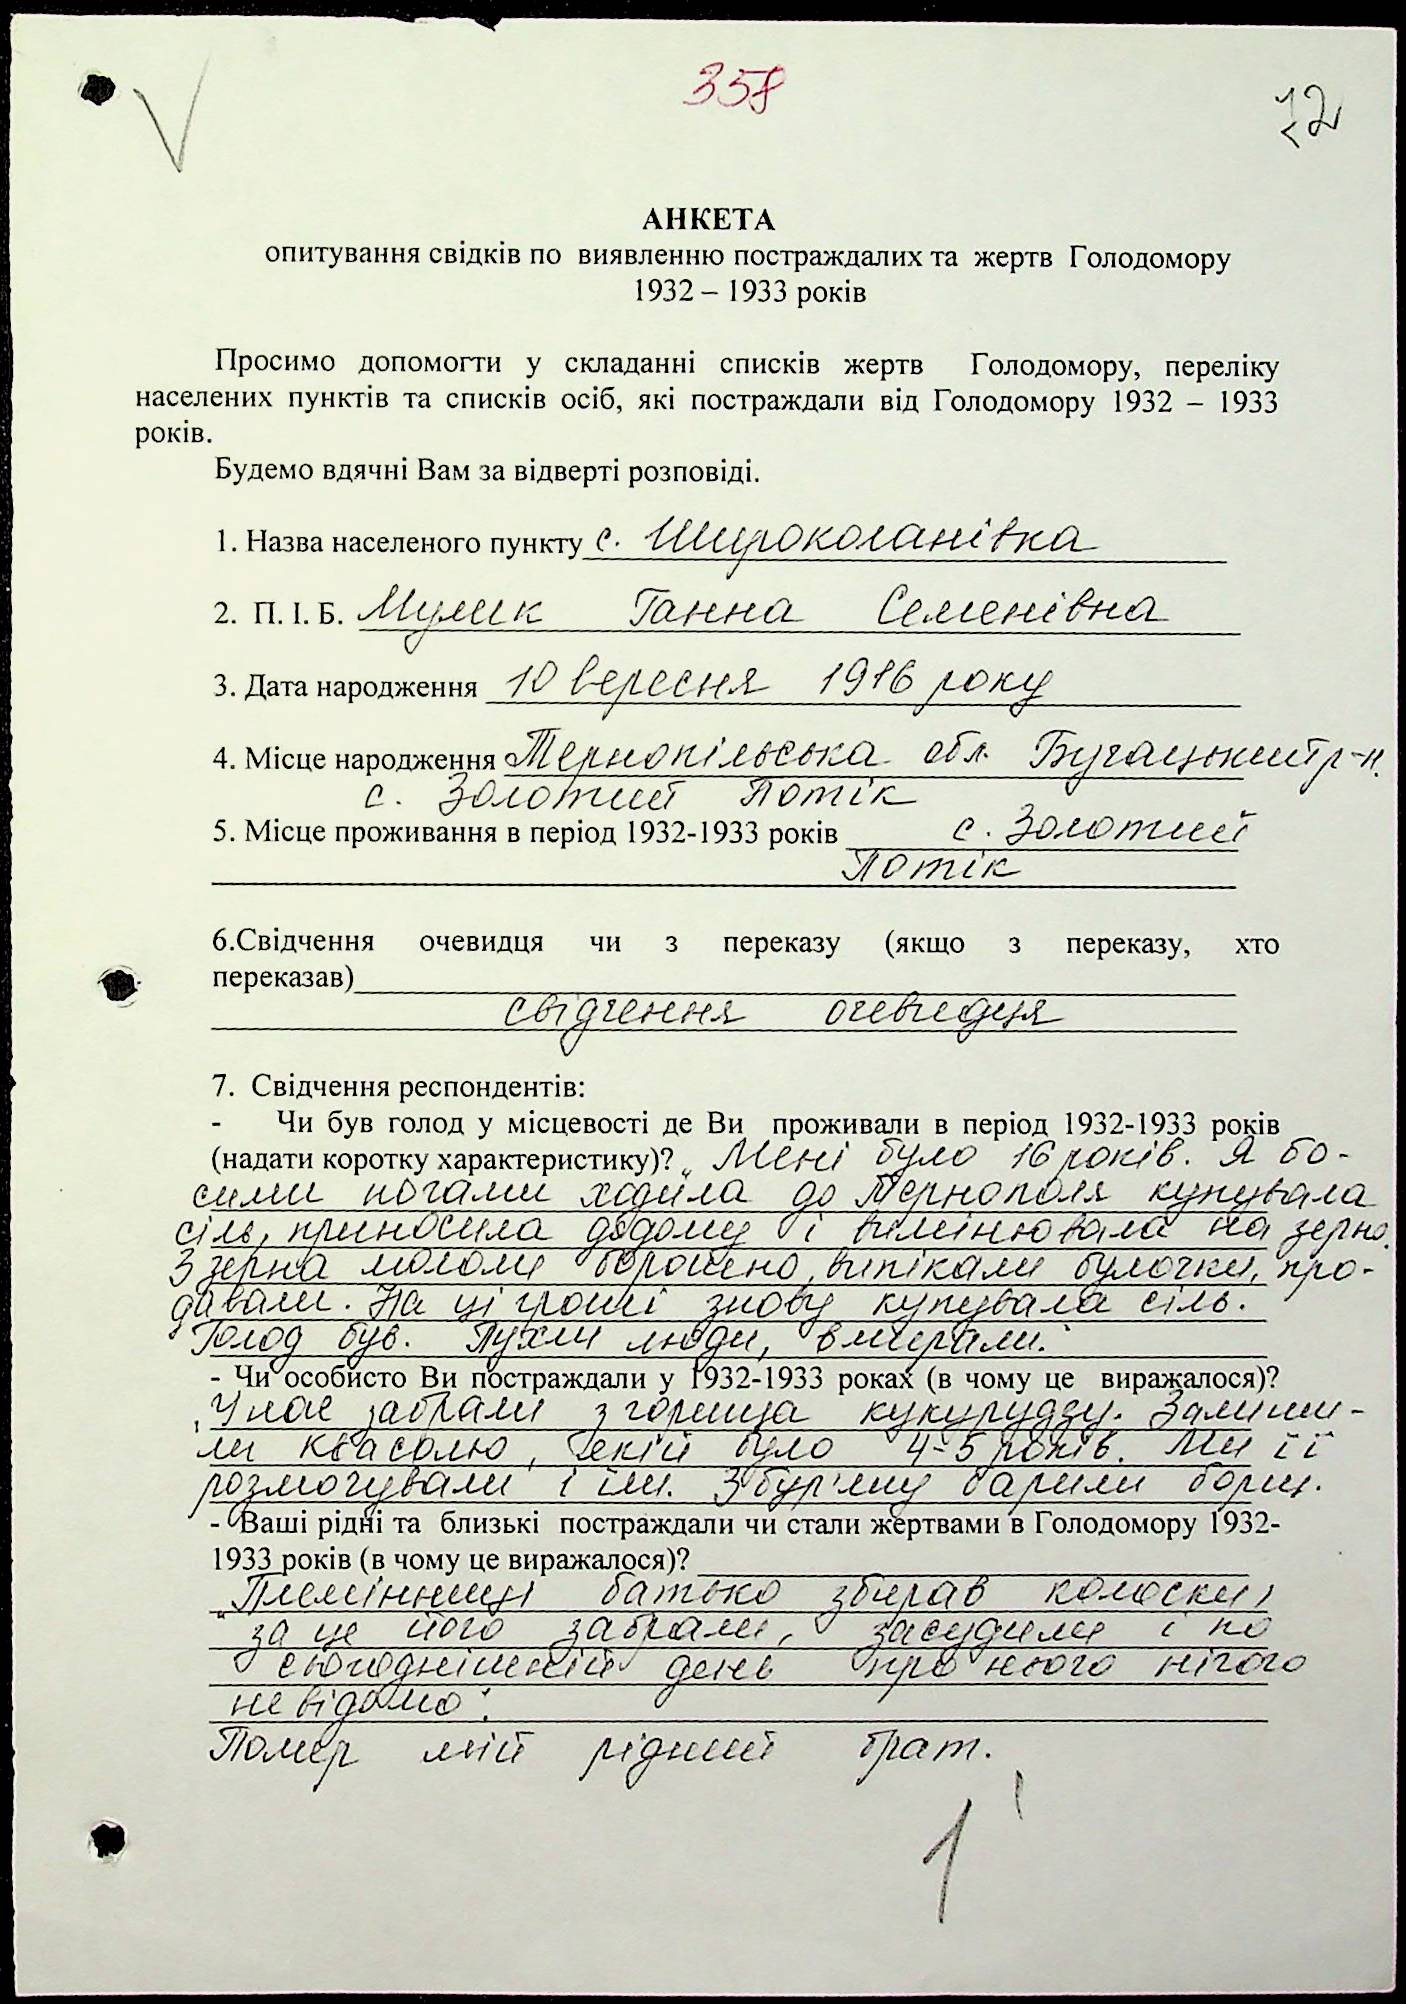 358
72
АНКЕТА
опитування свідків по виявленню постраждалих та жертв Голодомору
1932 – 1933 років
Просимо допомогти у складанні списків жертв Голодомору, переліку
населених пунктів та списків осіб, які постраждали від Голодомору 1932 – 1933
років.
Будемо вдячні Вам за відверті розповіді.
1. Назва населеного пункту с. Широколанівка
2. П. І. Б. Мулик Ганна Семенівна
3. Дата народження 10 вересня 1916 року
4. Місце народження Тернопільська обл. Бучацький р-н.
с. Золотий Потік
5. Місце проживання в період 1932-1933 років с. Золотий
Потік
6.Свідчення очевидця чи з переказу (якщо з переказу, хто
переказав)
свідчення очевидця
7. Свідчення респондентів:
- Чи був голод у місцевості де Ви проживали в період 1932-1933 років
(надати коротку характеристику)? „Мені було 16 років. Я бо-
сими ногами ходила до Тернополя купувала
сіль, приносила додому і вимінювала на зерно.
З зерна мололи борошно, випікали булочки, про-
давали. На ці гроші знову купувала сіль.
Голод був. Пухли люди, вмирали."
- Чи особисто Ви постраждали у 1932-1933 роках (в чому це виражалося)?
„У нас забрали з горища кукурудзу. Залиши-
ли квасолю, якій було 4-5 років. Ми її
розмочували і їли. З бур'яну варили борщ.
- Ваші рідні та близькі постраждали чи стали жертвами в Голодомору 1932-
1933 років (в чому це виражалося)?
„Племінниці батько збирав колоски,
за це його забрали, засудили і по
сьогоднішній день про нього нічого
не відомо".
Помер мій рідний брат.
1